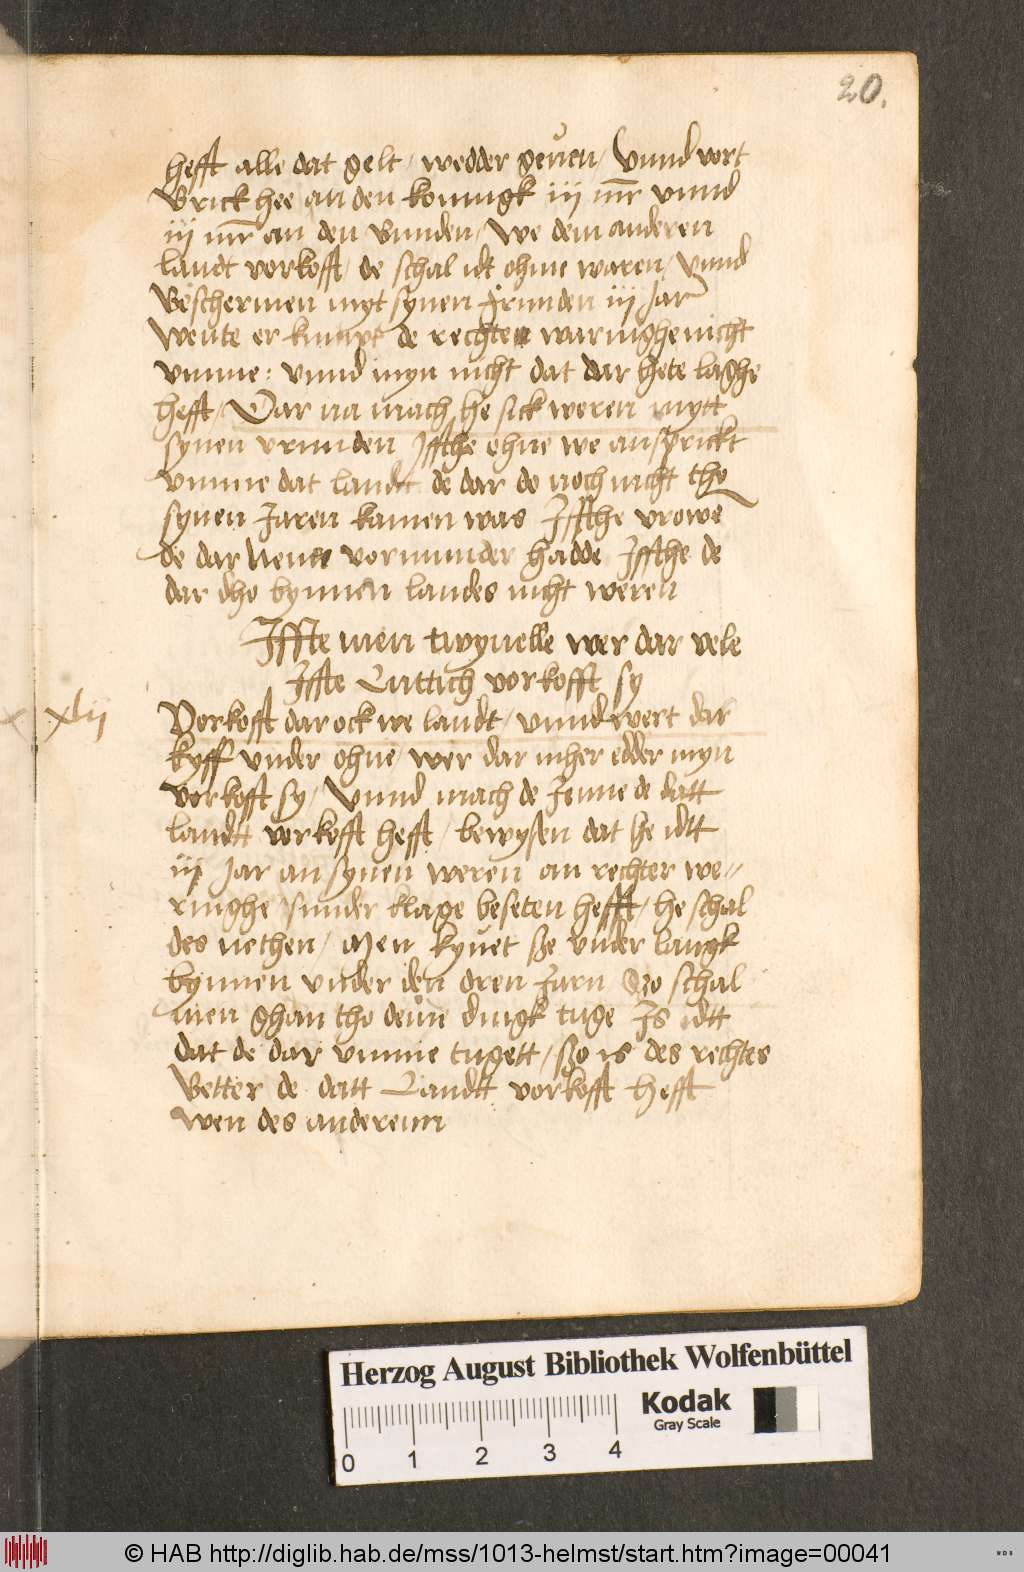 20.
hefft alle dat gelt / wedder geuen / Vnnd vort
Brick hee an den konnigk iij mr vnnd
iij mr an den Bunden / We dem anderen
landt vorkofft / de schal idt ohme waren / Vnnd
Beschermen myt synen frunden iij Jar
Wente er kumpt de rechten waringhe nicht
vmme: vnnd myn nicht dat dar hete laghe
hefft / Dar na mach he sick weren mytt
synen vrunden Iffthe ohne we ansprickt
vmme dat landt de dar do noch nicht tho
synen Jaren kamen was Iffthe vrowe
de dar nene vormunder hadde Iffthe de
dar dho bynnen landes nicht weren
Iffte men twyuelle wer dar vele
Iffte Luttich vorkofft sy
xlij
Vorkofft dar ock we landt / vnnd wert dar
kyff vnder ohne / wer dar mher edder myn
vorkofft sy / Vnnd mach de Jenne de datt
landtt vorkofft hefft / bewysen dat he idtt
iij Jar an synen weren an rechter we=
ringhe sunder klage beseten hefft / he schal
des nethen / Men kyuet sze vnder langk
bynnen vnder den dren Jarn Szo schal
men ghan tho deme dingk tuge Is idtt
dat de dar vmme tugett / szo is des rechtes
Better de datt Landtt vorkofft hefft
wen des anderenn
Herzog August Bibliothek Wolfenbüttel
Kodak
Gray Scale
0 1 2 3 4
© HAB http://diglib.hab.de/mss/1013-helmst/start.htm?image=00041